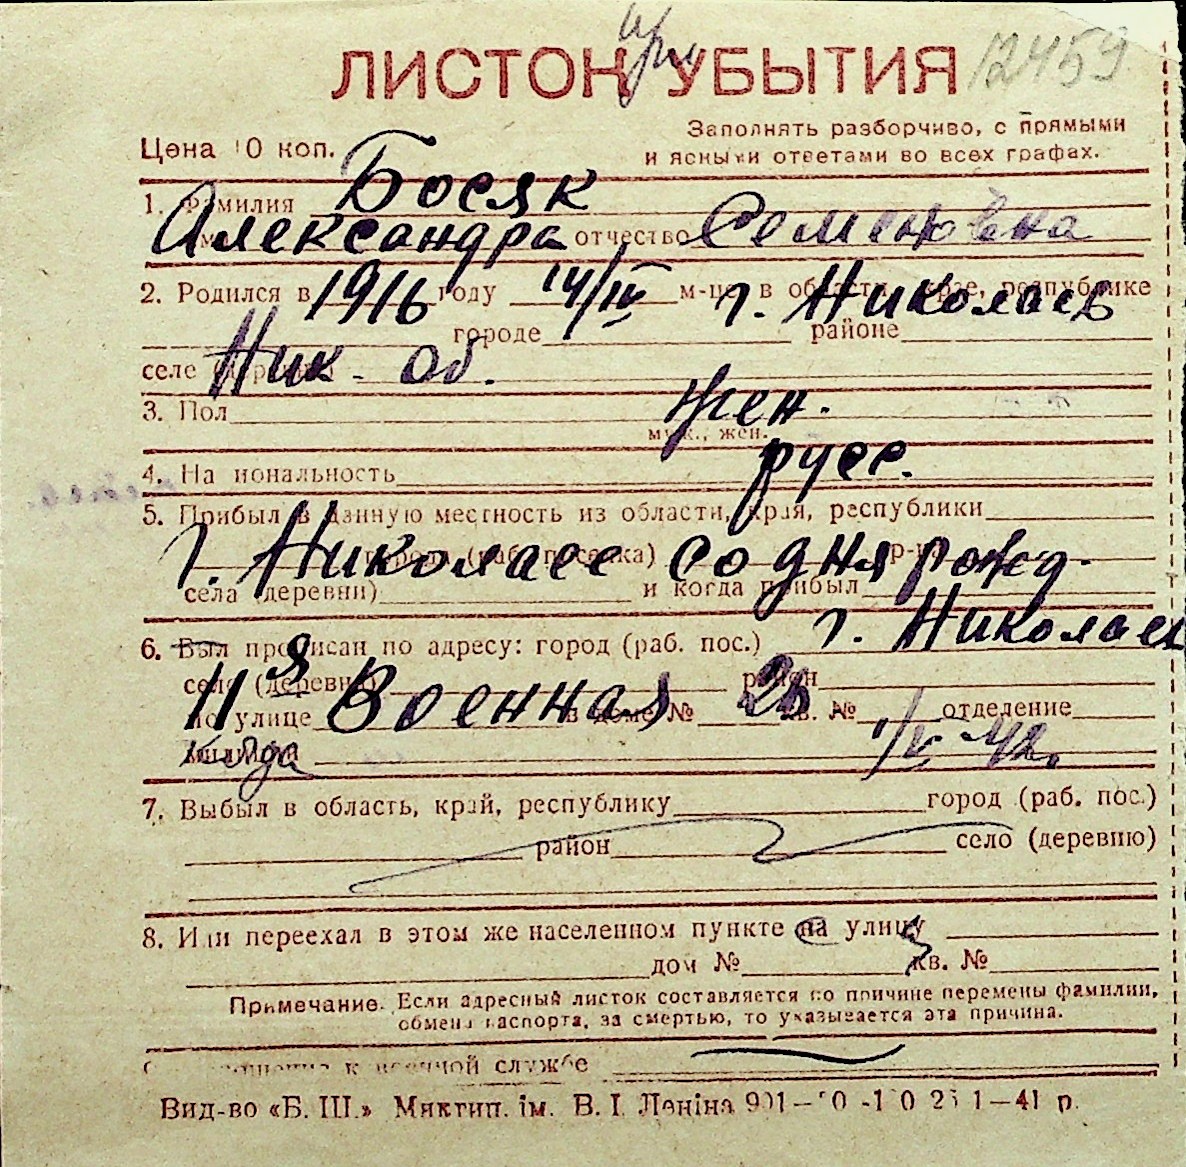 ЛИСТОК при УБЫТИЯ 12459
Заполнять разборчиво, с прямыми
Цена 10 коп. и ясными ответами во всех графах.
1. Фамилия Босяк
Имя Александра отчество Семеновна
2. Родился в 1916 году 14/IV м-ца в области, крае, республике г. Николаев
городе районе
селе (деревне) Ник. об.
3. Пол жен.
муж., жен.
4. Национальность русс.
5. Прибыл в данную местность из области, края, республики
г. Николаев со дня рожд.
города (раб. поселка) р-на
села (деревни) и когда прибыл
6. Был прописан по адресу: город (раб. пос.) г. Николаев
село (деревня) район
по улице 11я Военная в доме № 26 кв. № отделение
милиции когда 1/V-42.
7. Выбыл в область, край, республику город (раб. пос.)
район село (деревню)
8. Или переехал в этом же населенном пункте на улицу
дом № кв. №
Примечание. Если адресный листок составляется по причине перемены фамилии,
обмена паспорта, за смертью, то указывается эта причина.
к военной службе
Вид-во «Б. Ш.» Миктип. ім. В. І. Леніна 1—41 р.